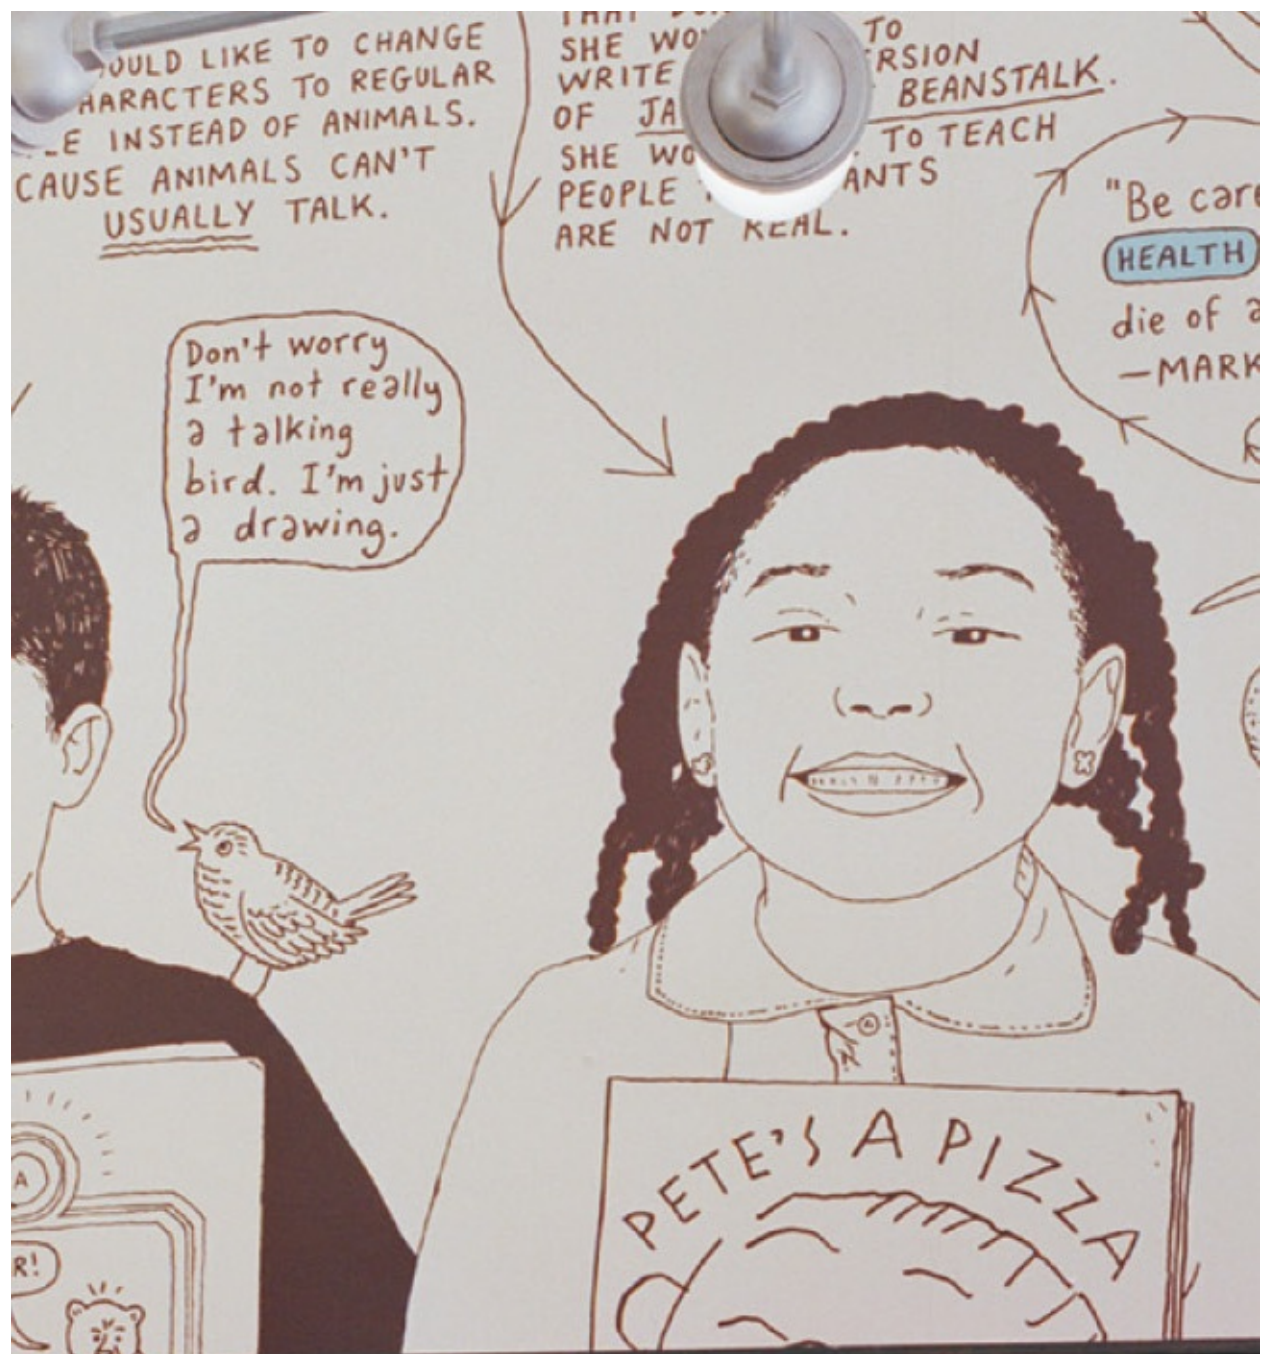 OULD LIKE TO CHANGE
HARACTERS TO REGULAR
LE INSTEAD OF ANIMALS.
CAUSE ANIMALS CAN'T
USUALLY TALK.
SHE WO TO
WRITE ERSION
OF JA BEANSTALK.
SHE WO TO TEACH
PEOPLE ANTS
ARE NOT REAL.
"Be care
HEALTH
die of a
—MARK
Don't worry
I'm not really
a talking
bird. I'm just
a drawing.
PETE'S A PIZZA
A
R!